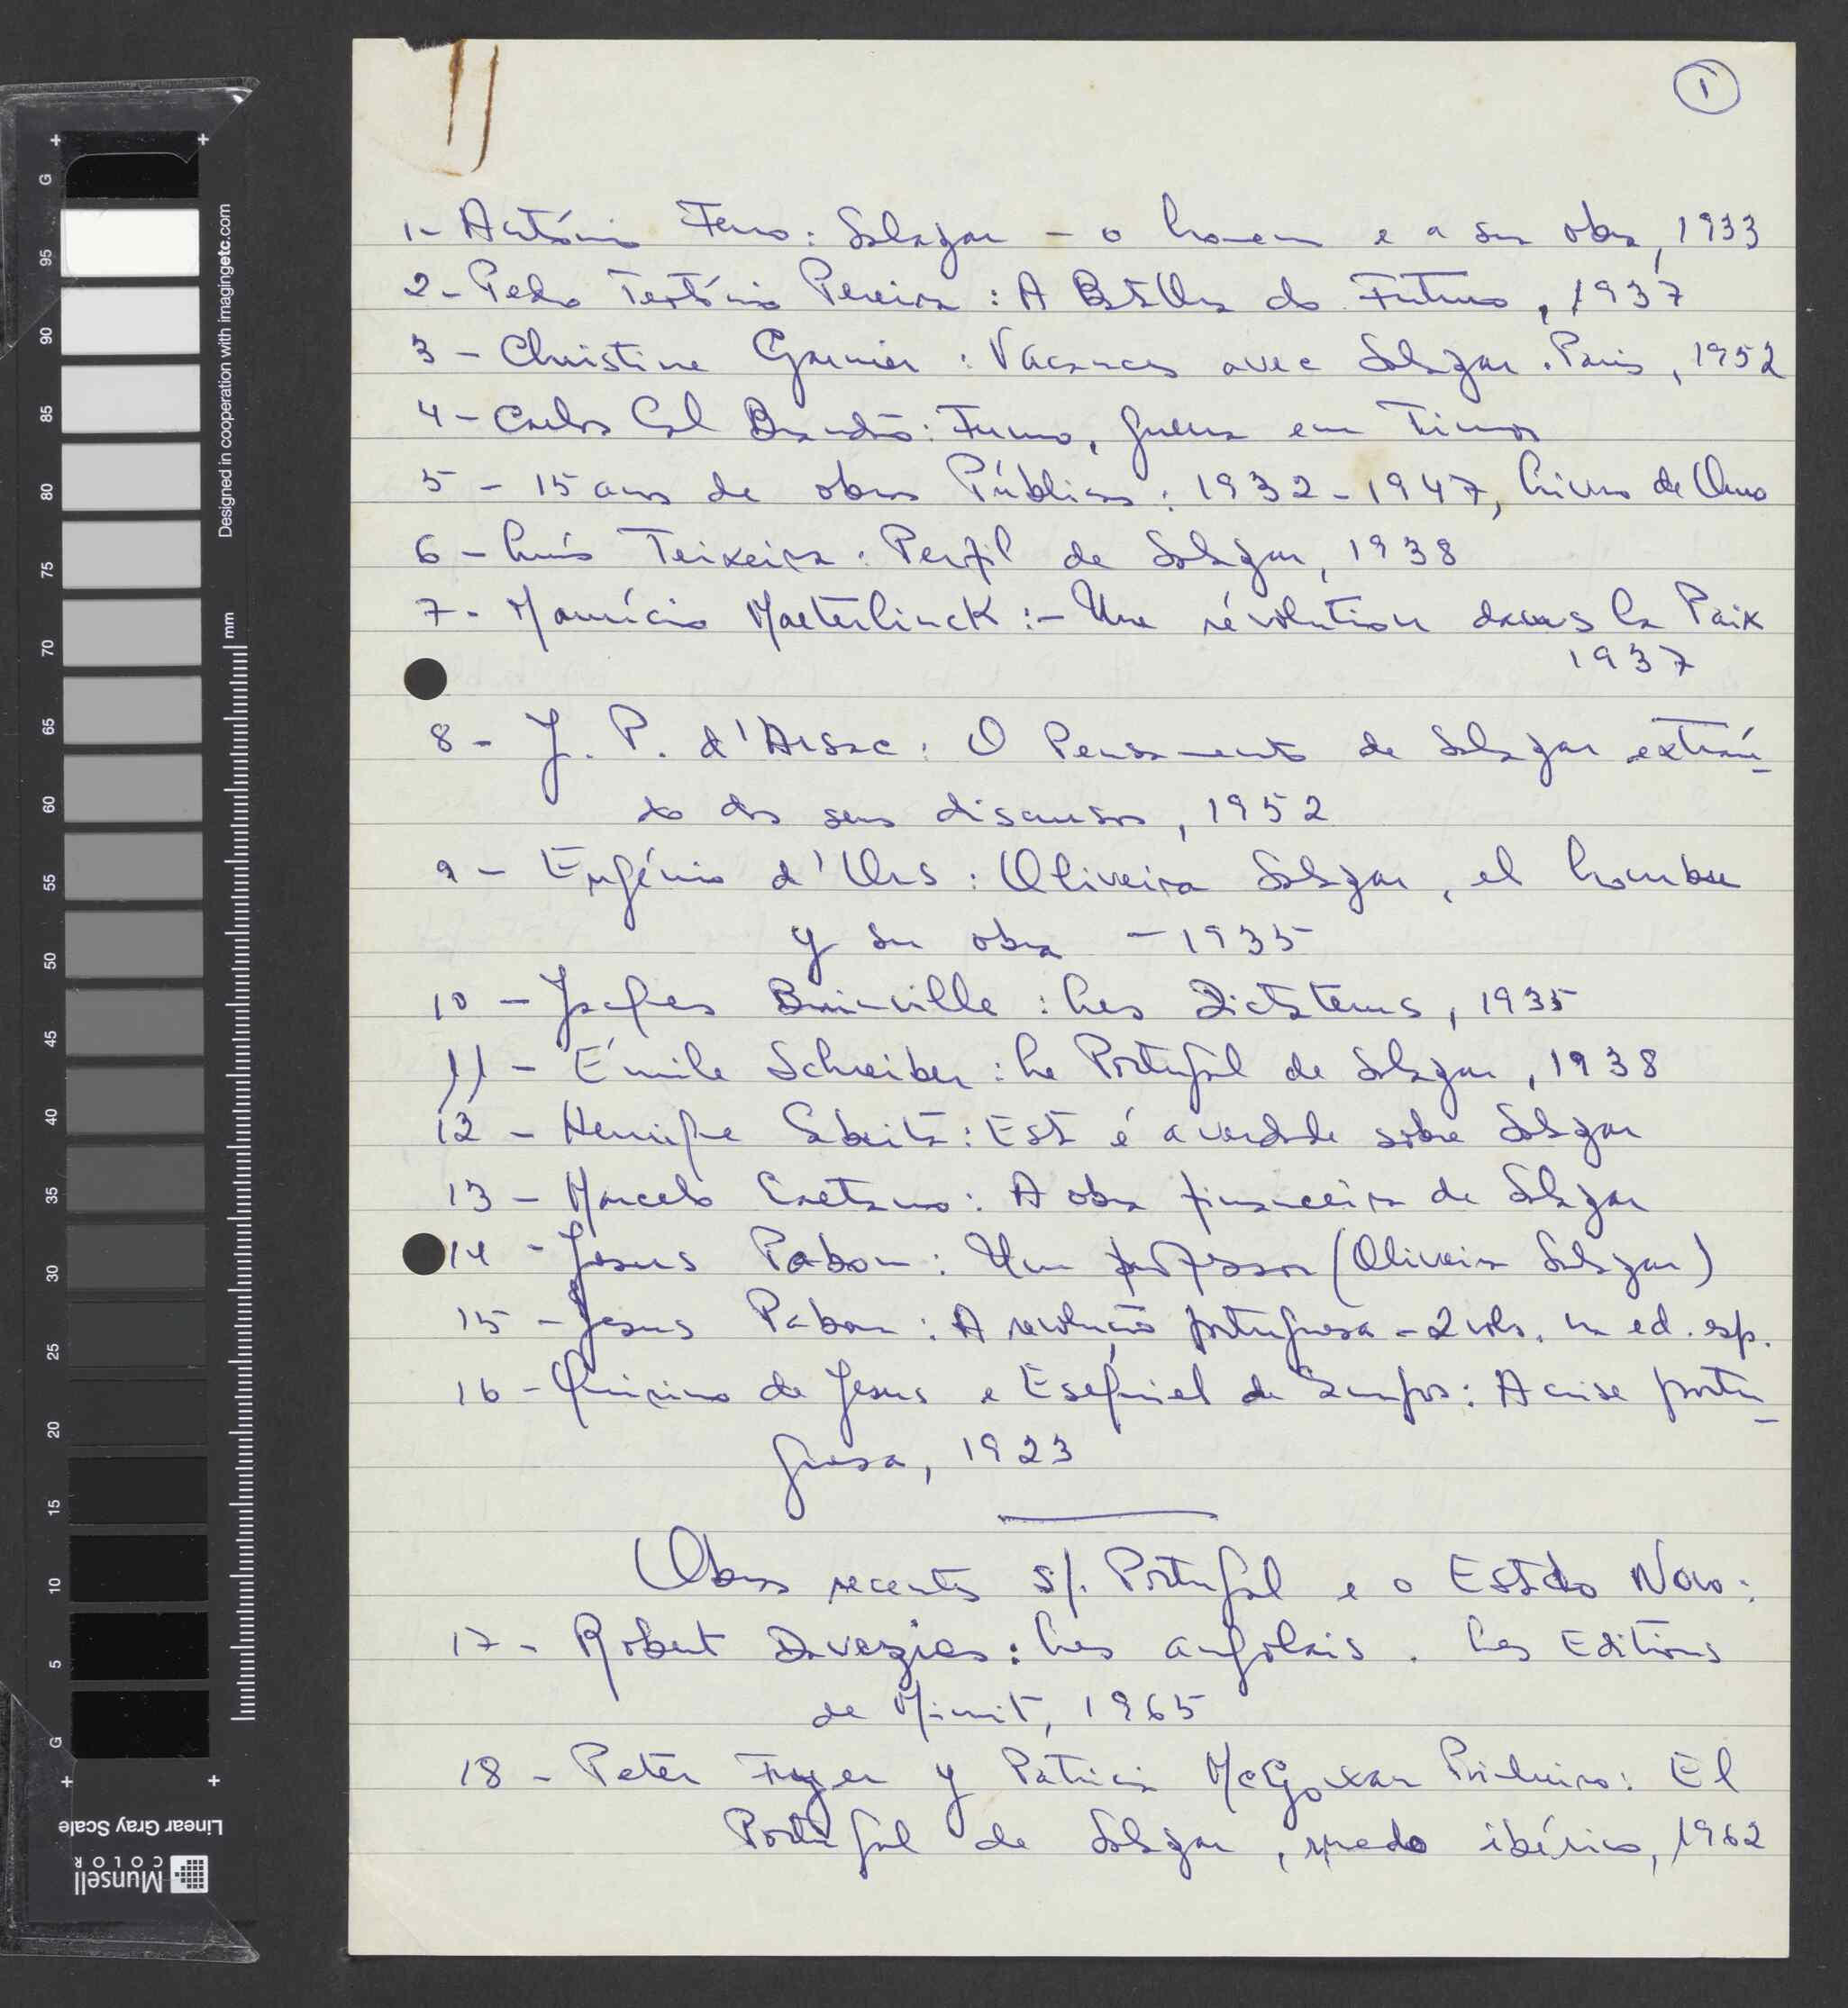 1
1- António Ferro: Salazar - o homem e a sua obra, 1933
2- Pedro Teotónio Pereira: A Batalha do Futuro, 1937
3 - Christine Garnier: Vacances avec Salazar. Paris, 1952
4 - Carlos Cal Brandão: Funo, guerra em Timor
5 - 15 anos de obras Públicas: 1932-1947, Livro de Ouro
6 - Luís Teixeira: Perfil de Salazar, 1938
7 - Maurício Maeterlinck:- Une révolution dans la Paix
1937
8 - J. P. d'Assac: O Pensamento de Salazar extraí-
do dos seus discursos, 1952
9 - Eugénio d'Ors: Oliveira Salazar, el hombre
y su obra - 1935
10 - Jaques Bainville: Les Dictateurs, 1935
11 - Émile Schreiber: Le Portugal de Salazar, 1938
12 - Henrique Cabrita: Esta é a verdade sobre Salazar
13 - Marcelo Caetano: A obra financeira de Salazar
14 - Jesus Pabon: Um professor (Oliveira Salazar)
15 - Jesus Pabon: A revolução portuguesa - 2 vols. na ed. esp.
16 - Quirino de Jesus e Esequiel de Campos: A crise portu-
guesa, 1923
Obras recentes s/. Portugal e o Estado Novo:
17 - Robert Davezies: Les angolais. Les Editions
de Minuit, 1965
18 - Peter Fryer y Patricia McGowan Pinheiro: El
Portugal de Salazar, ruedo ibérico, 1962
Designed in cooperation with imagingetc.com
mm
+ +
G
95
90
85
80
75
70
65
60
55
50
45
40
35
30
25
20
15
10
5
G
+ +
Linear Gray Scale
Munsell
COLOR